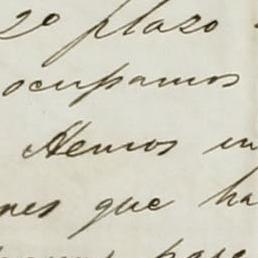 2º plazo
ocupamos
Hemos en
nes que ha
para